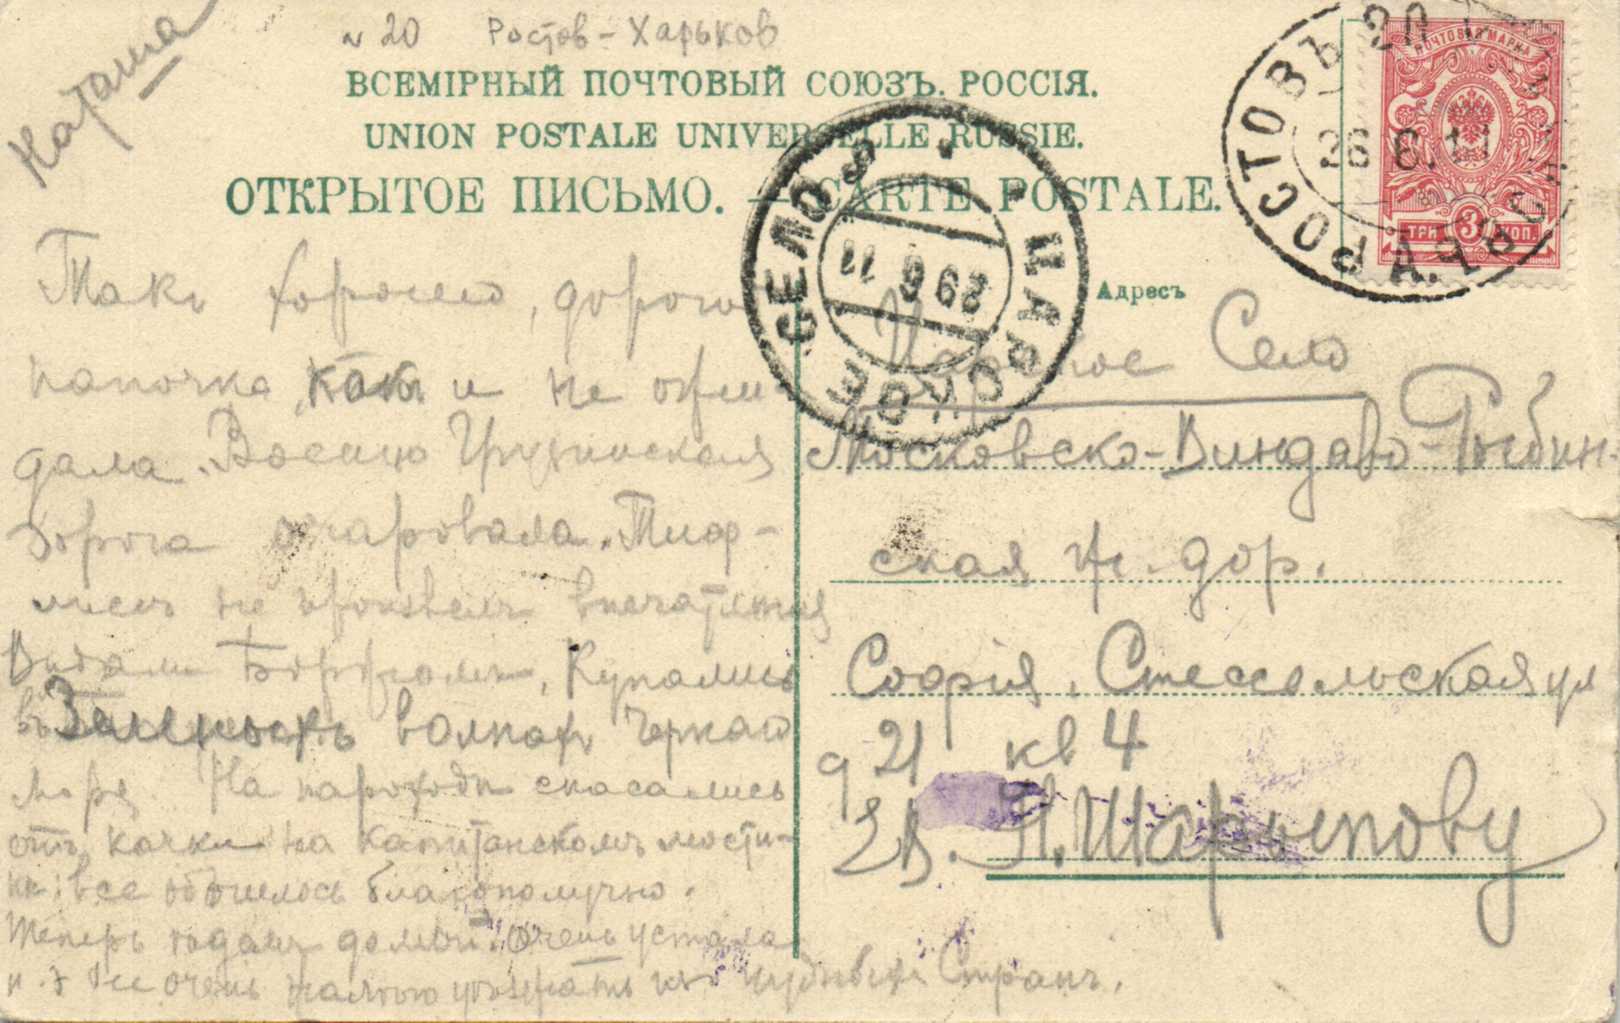 Наташа
№ 20 Ростов - Харьков
ВСЕМІРНЫЙ ПОЧТОВЫЙ СОЮЗЪ. РОССІЯ.
UNION POSTALE UNIVERSELLE RUSSIE.
ОТКРЫТОЕ ПИСЬМО. — CARTE POSTALE.
РОСТОВЪ
26 6. 11
ПОЧТОВАЯ МАРКА
ТРИ 3 КОП.
ЦАРСКОЕ СЕЛО
29 6 11
Адресъ
Такъ хорошо, дорогой
папочка, какъ и не ожи-
дала. Военно Грузинская
дорога очаровала. Тиф-
лисъ не произвелъ впечатления
Видали Боржомъ, Купались
въ Зеленыхъ волнахъ Чернаго
моря. На пароходе спасались
отъ качки на капитанскомъ мости-
ке: все обошлось благополучно.
Теперь едемъ домой. Очень устала
очень жалко уезжать изъ Странъ.
Царское Село
Московско-Виндаво-Рыбин-
ская ж. дор.
Софія, Стессельская ул
д 21 кв 4
ЕВ. П. Шарыпову